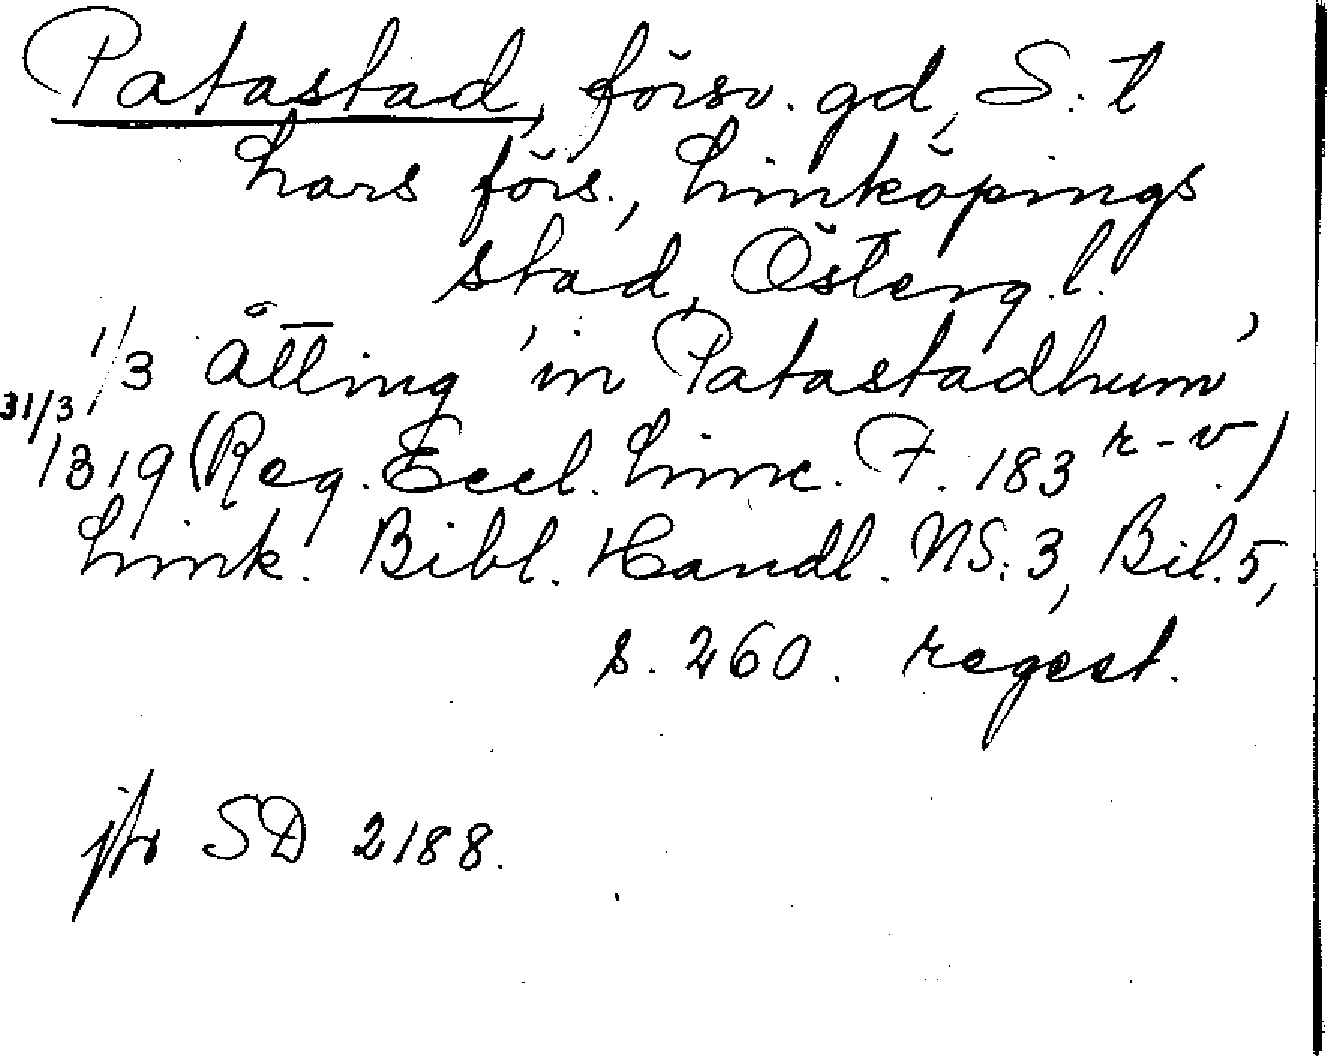 Patastad, försv. gd, S:t
Lars förs., Linköpings
stad, Österg.l.
1/3 åtting 'in Patastadhum'
31/3
1319 (Reg. Eccl. Linc. F. 183 r-v)
Link. Bibl. Handl. NS:3, Bil.5,
s. 260. regest.
jfr SD 2188.